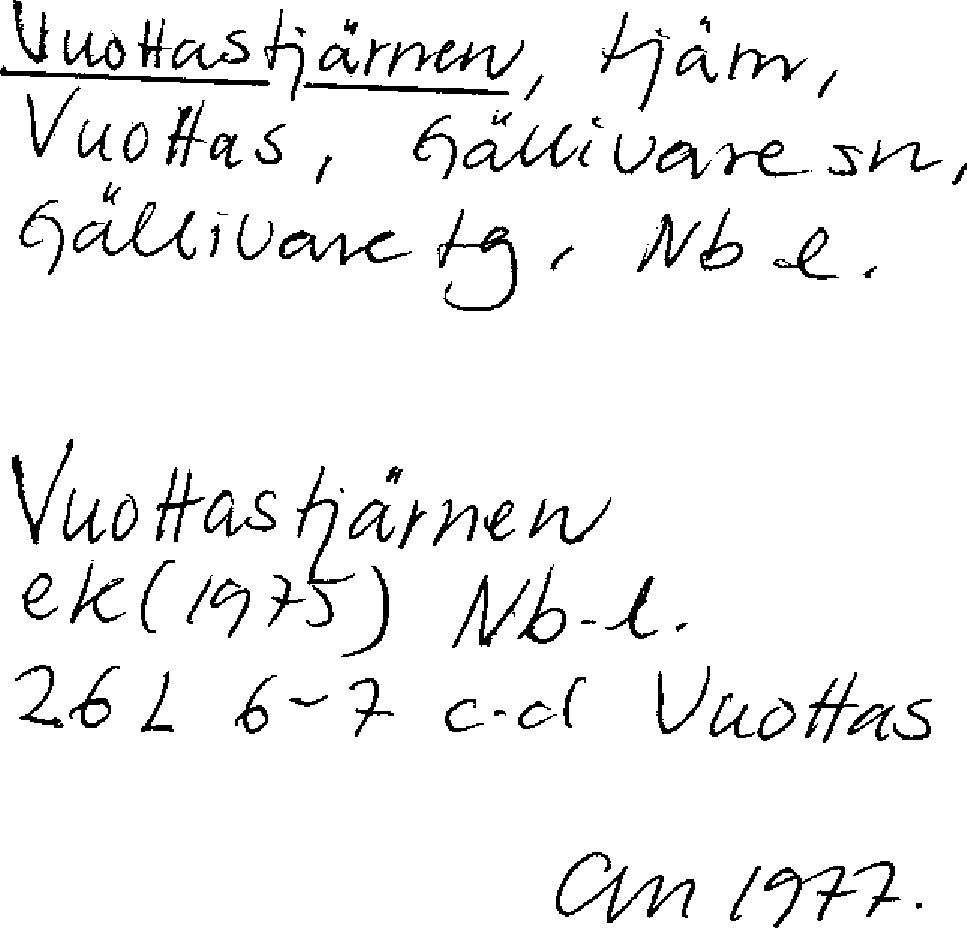 Vuottastjärnen, tjärn,
Vuottas, Gällivare sn,
Gällivare tg, Nb l.
Vuottastjärnen
ek (1975) Nb-l.
26 L 6-7 c-d Vuottas
1977.